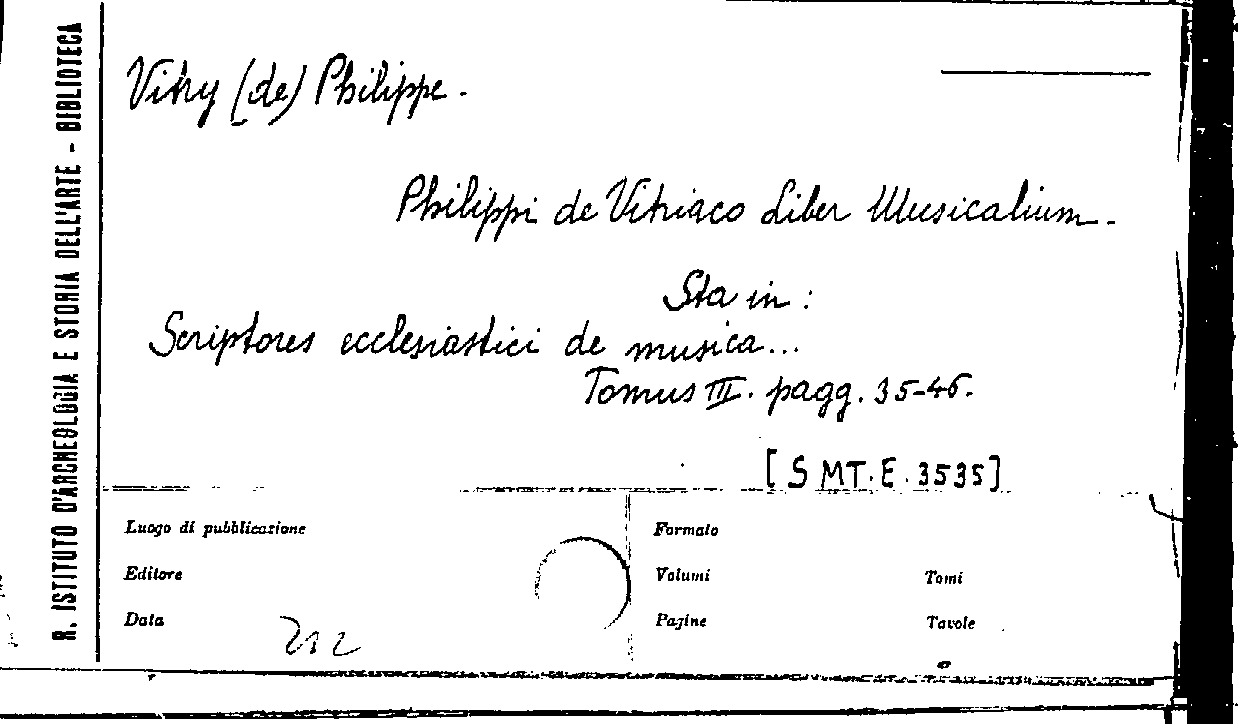 R. ISTITUTO D'ARCHEOLOGIA E STORIA DELL'ARTE - BIBLIOTECA
Vitry (de) Philippe.
Philippi de Vitriaco Liber Musicalium.
Sta in:
Scriptores ecclesiastici de musica...
Tomus III. pagg. 35-46.
[S MT. E. 3535]
Luogo di pubblicazione
Editore
Data 212
Formato
Volumi Tomi
Pagine Tavole